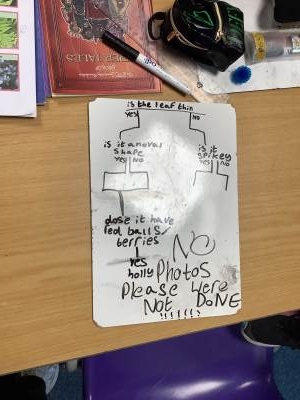 is the leaf thin
YES NO
is it an oval
shape
YES NO
is it
spikey
YES NO
dose it have
red balls/
berries
YES
holly
NO
Photos
Please were
Not DONE
!!!!!!